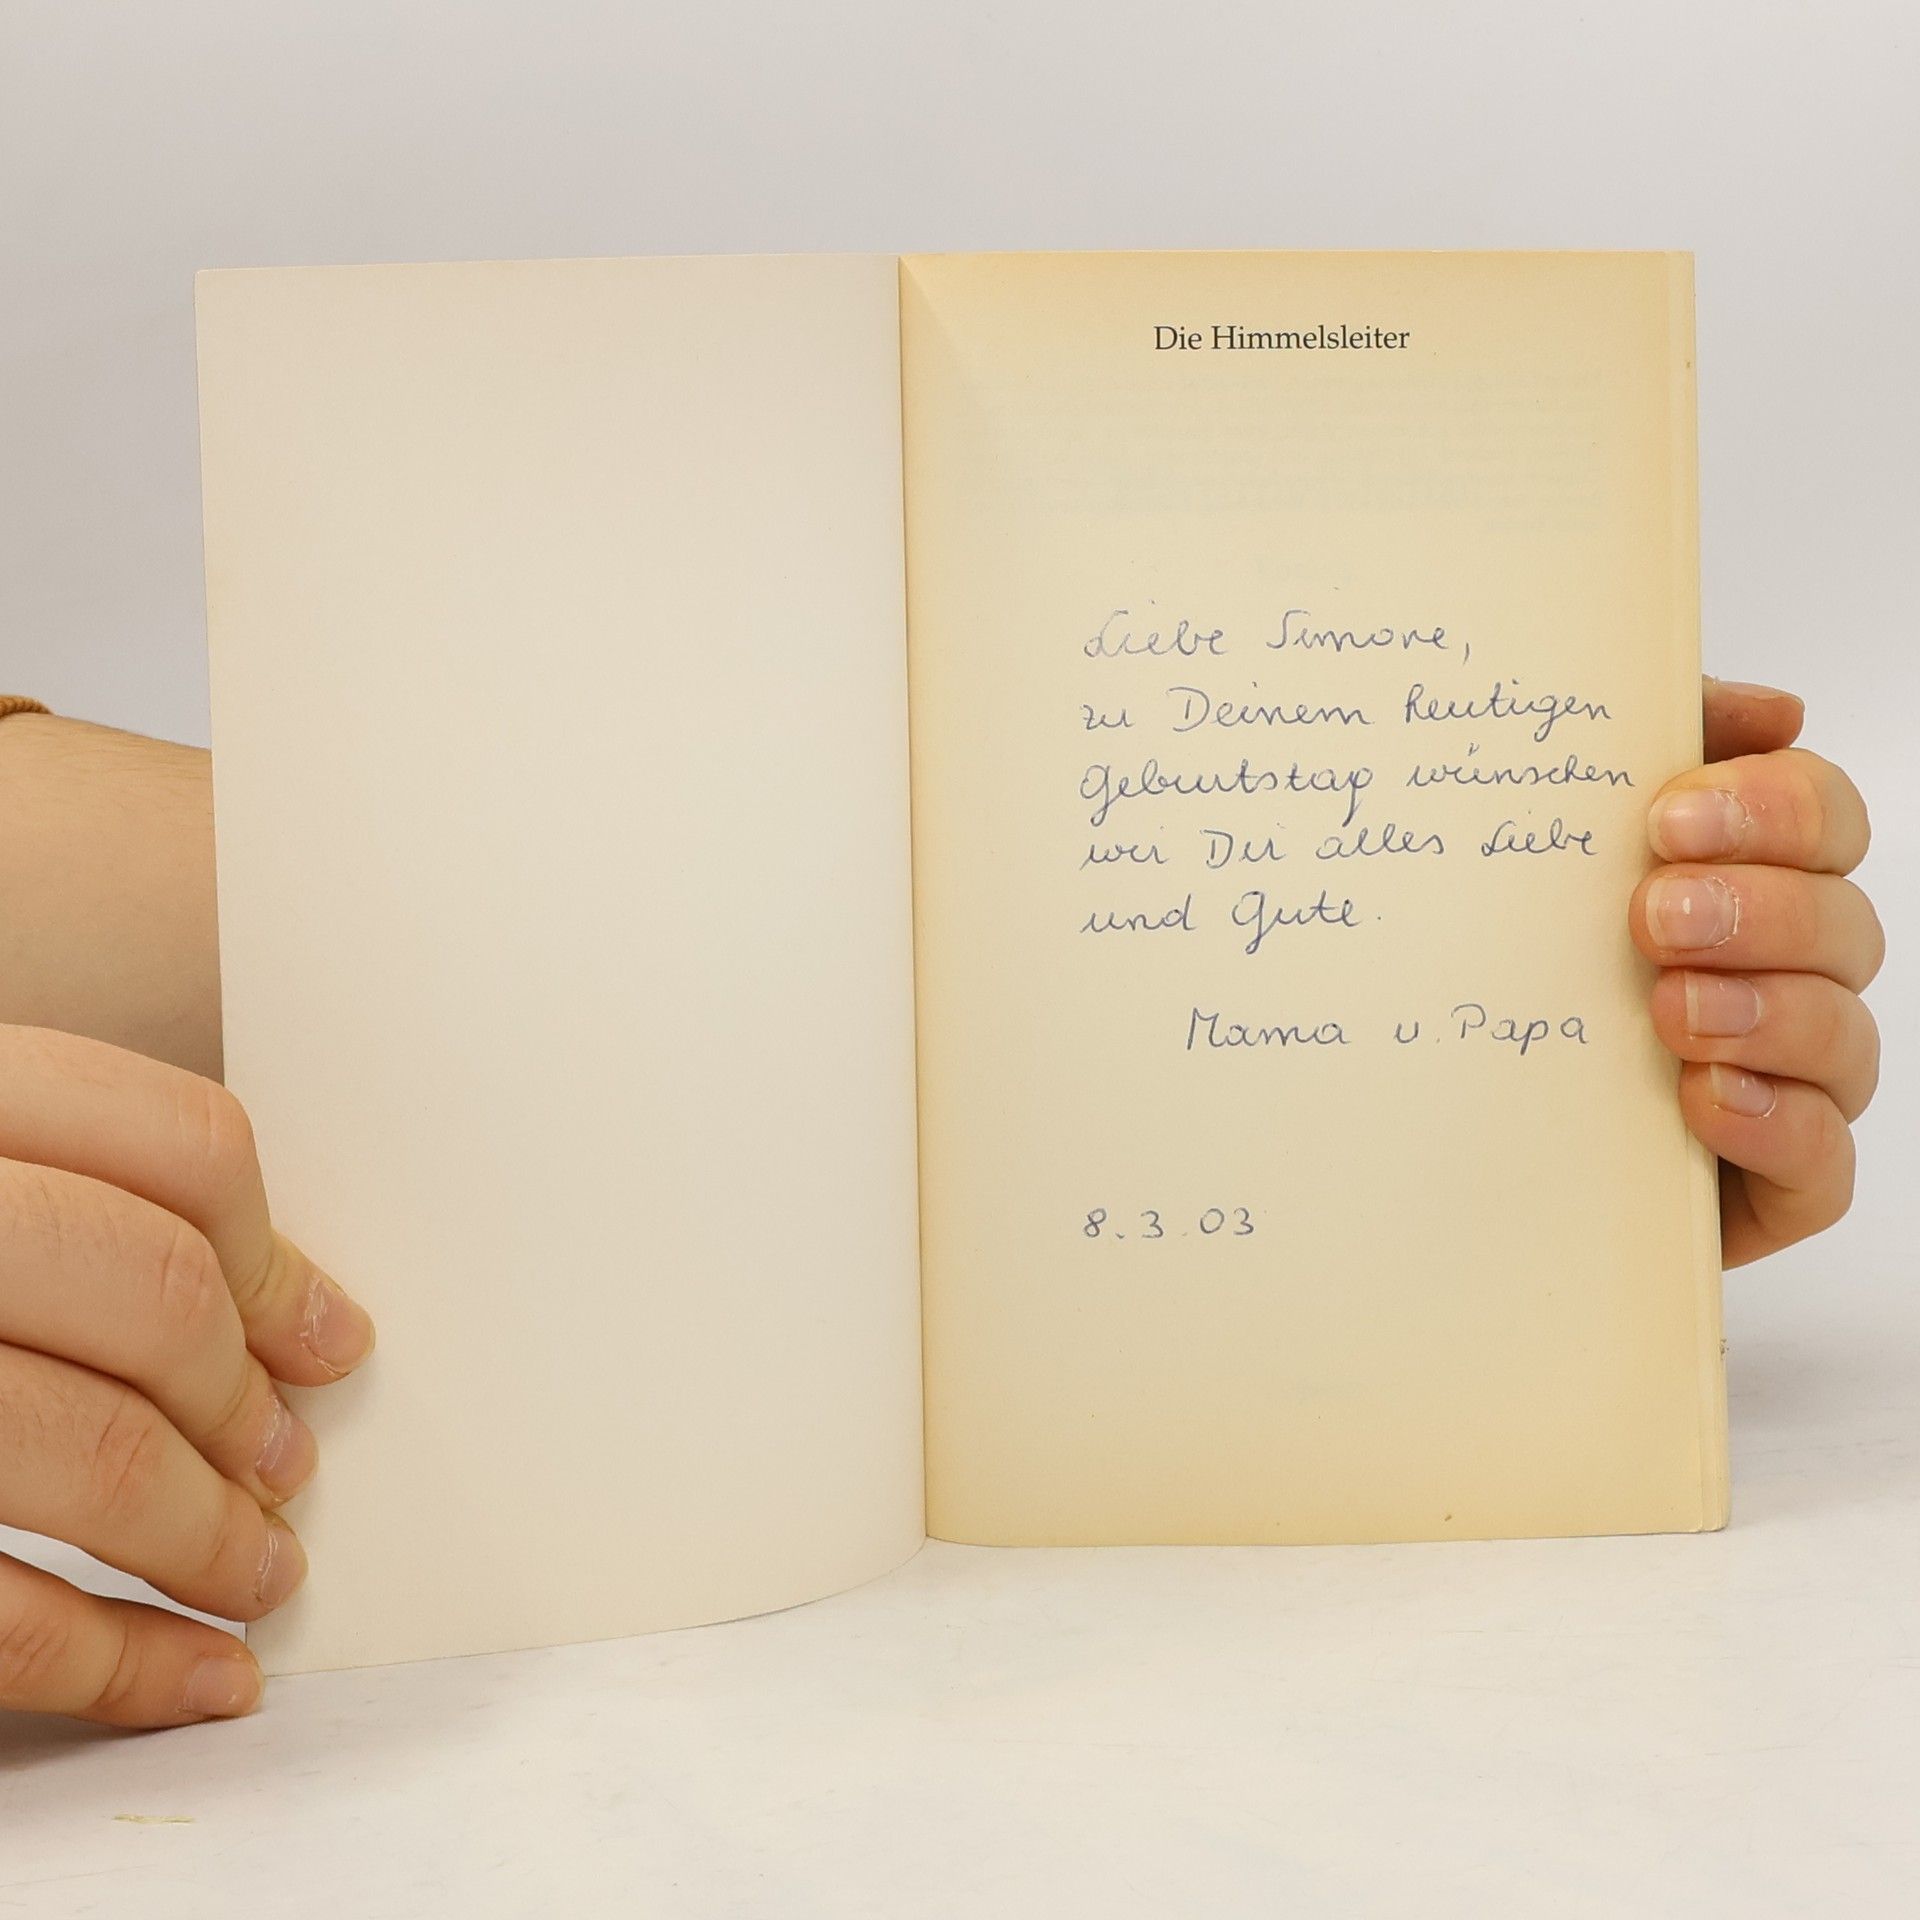 Die Himmelsleiter
Liebe Simone,
zu Deinem heutigen
Geburtstag wünschen
wir Dir alles Liebe
und Gute.
Mama u. Papa
8.3.03